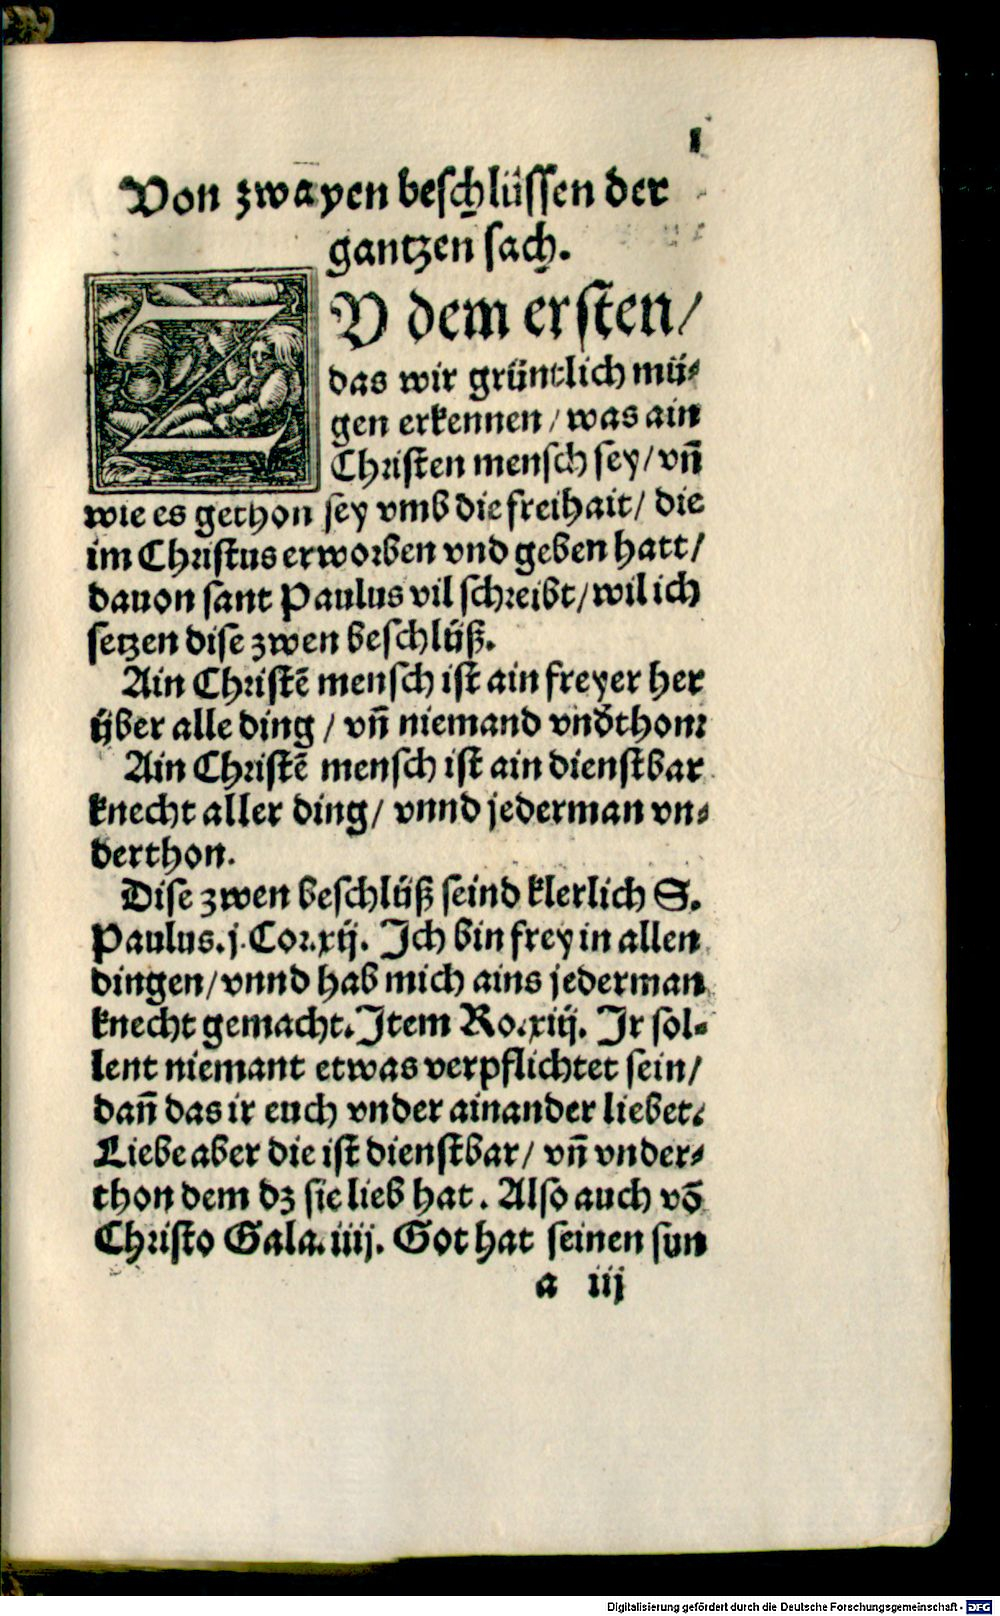 1
Von zwayen beschlüssen der
gantzen sach.
ZV dem ersten/
das wir grüntlich mü⸗
gen erkennen / was ain
Christen mensch sey / vñ
wie es gethon sey vmb die freihait / die
im Christus erworben vnd geben hatt /
dauon sant Paulus vil schreibt / wil ich
setzen dise zwen beschlüß.
Ain Christē mensch ist ain freyer her
über alle ding / vñ niemand vnd̕thon:
Ain Christē mensch ist ain dienstbar
knecht aller ding / vnnd jederman vn⸗
derthon.
Dise zwen beschlüß seind klerlich S.
Paulus. j. Cor. xij. Ich bin frey in allen
dingen / vnnd hab mich ains jederman
knecht gemacht. Item Ro. xiij. Ir sol⸗
lent niemant etwas verpflichtet sein /
dañ das ir euch vnder ainander liebet.
Liebe aber die ist dienstbar / vñ vnder⸗
thon dem dz sie lieb hat. Also auch vō
Christo Gala. iiij. Got hat seinen sun
a iij
Digitalisierung gefördert durch die Deutsche Forschungsgemeinschaft - DFG